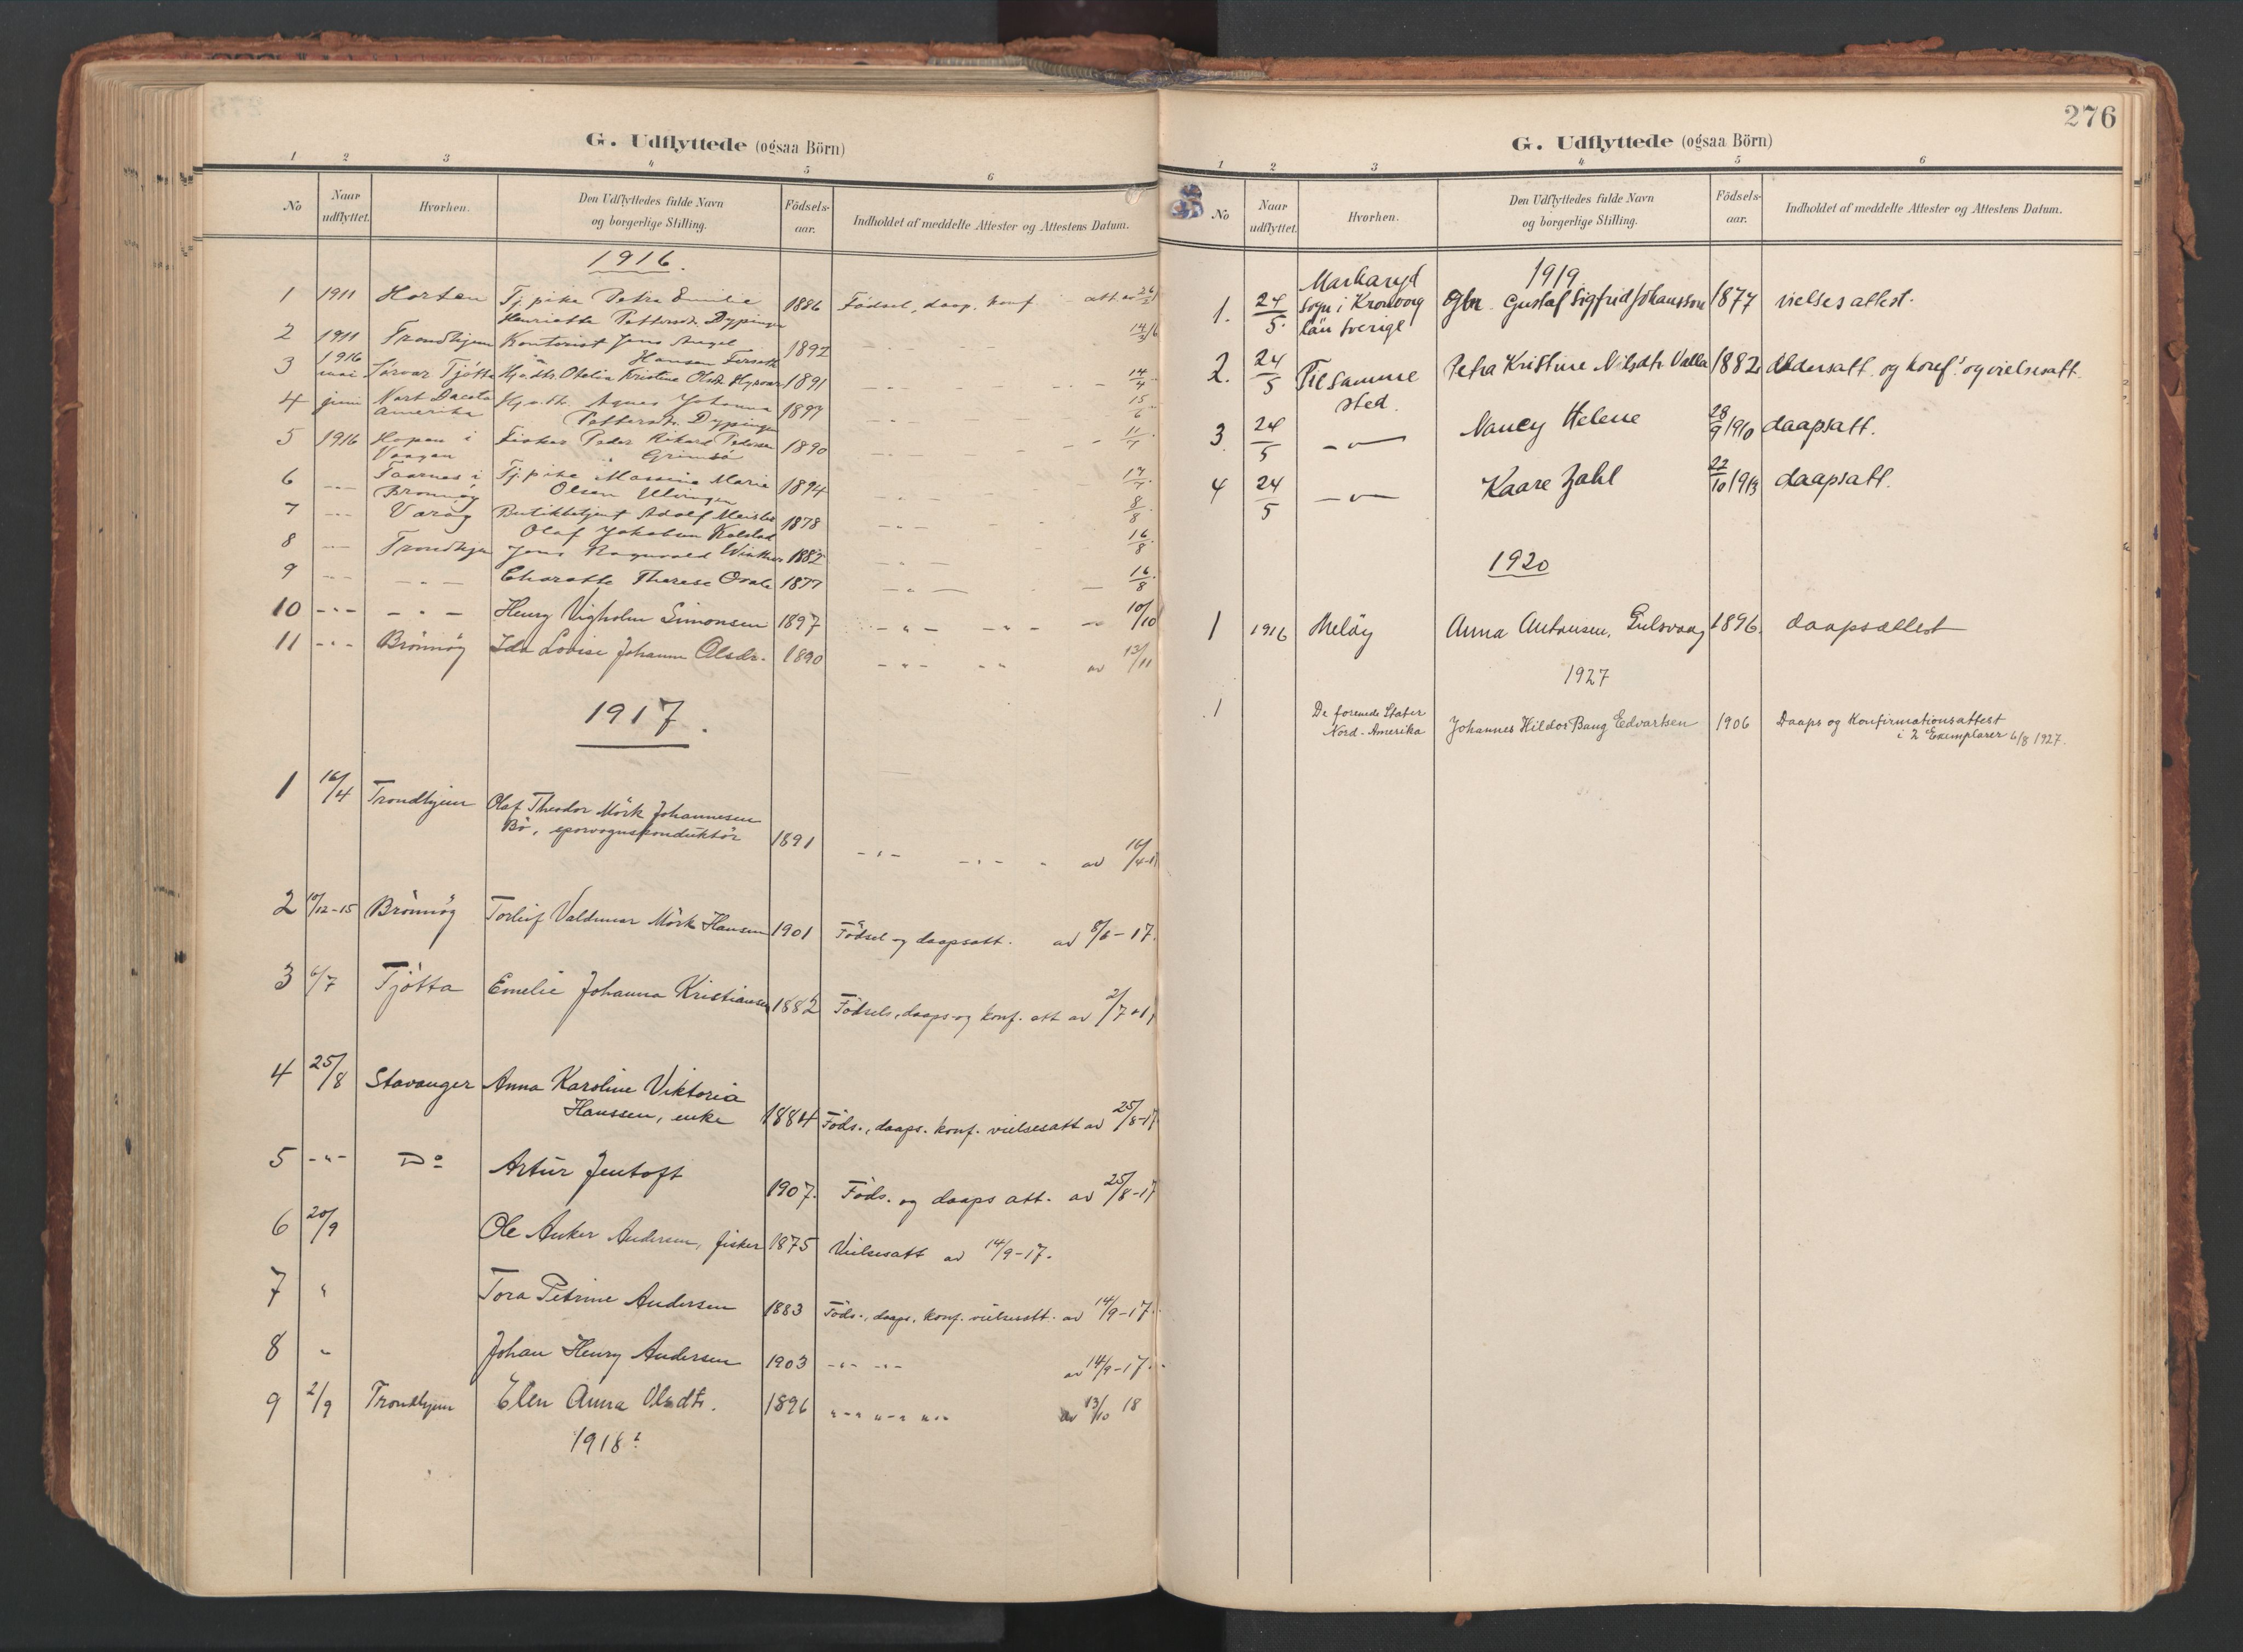 G. Udflyttede (ogsaa Börn)
1 2 3 4 5 6
No
Naar udflyttet.
Hvorhen.
Den Udflyttedes fulde Navn og borgerlige Stilling.
Födselsaar.
Indholdet af meddelte Attester og Attestens Datum.
1916.
1 1911 Horten Tj. pike Petra Emilie 1886 Födsel, daap, konf att av
Henriette Pettersdr. Dypingen
2 1911 Trondhjem Kontorist Jens Angel 1892
Hansen
3 1916 mai Tjötta Kristine Olsdr. 1891 14/4
4 juni Nort Dacota Amerika Agnes Johanna 1897 15/6
Pettersdr. Dypingen
5 1916 Hopen i Vaagan Fisker Peder Rikard Pedersen 1890
Grimsö
6 -"- i Brönnöy Tj. pike Massine Marie 1894
Olsen
7 -"- Adolf 1878 8/8
Olaf Jakobsen Kolstad
8 -"- Trondhjem Jens Ragnvald 1882 16/8
9 -"- -"- Therese 1877 16/8
10 -"- -"- Henry Vigholm Simonsen 1897 -"- -"- 10/10
11 -"- Brönnöy Ida Lovise Johanne Olsdr. 1890 -"- -"- av 13/11
1917.
1 16/4 Trondhjem Olaf Theodor Mörk Johannesen
Bö, sporvognskonduktör 1891 -"- -"- av 16/4-17
2 10/12-15 Brönnöy Torleif Valdemar Mörk Hansen 1901 Födsel og daapsatt. av 8/6-17.
3 6/7 Tjötta Emelie Johanna Kristiansen 1882 Födsels, daaps- og konf. att av 2/7-17
4 25/8 Stavanger Anna Karoline Viktoria
Hanssen, enke 1884 Föds., daaps. konf. vielsesatt av 25/8-17
5 -"- Do Artür Jentoft 1907. Föds. og daaps att. av 25/8-17
6 20/9 Ole Anker Andersen, fisker 1875 Vielsesatt av 14/9-17.
7 " Tora Petrine Andersen 1883 Föds., daaps. konf. vielsesatt. av 14/9-17.
8 " Johan Henry Andersen 1903 -"- -"- av 14/9-17.
9 2/9 Trondhjem Elen Anna Olsdtr. 1896 "-" "-" "-" av 13/10 18
1918:
276
G. Udflyttede (ogsaa Börn)
1 2 3 4 5 6
No
Naar udflyttet.
Hvorhen.
Den Udflyttedes fulde Navn og borgerlige Stilling.
Födselsaar.
Indholdet af meddelte Attester og Attestens Datum.
1919.
Markaryd
1. 24/5. Sogn i Kronborg Gbr. Gustaf Sigfrid Johansson 1877 vielsesattest.
län Sverige
2. 24/5 Til samme sted. Petra Kristine Nilsdtr Valla 1882 Aldersatt. og konf. og vielsesatt.
3 24/5 -"- Nancy Helene 28/9 1910 daapsatt.
4 24/5 -"- Kaare Zahl 22/10 1913 daapsatt.
1920
1 1916 Meløy Anna Antonsen, 1896. daapsattest
1927
1 De forenede Stater
Nord-Amerika Johannes Hildor Bang Edvartsen 1906 Daaps og Konfirmationsattest
i 2 Exemplarer 6/8 1927.